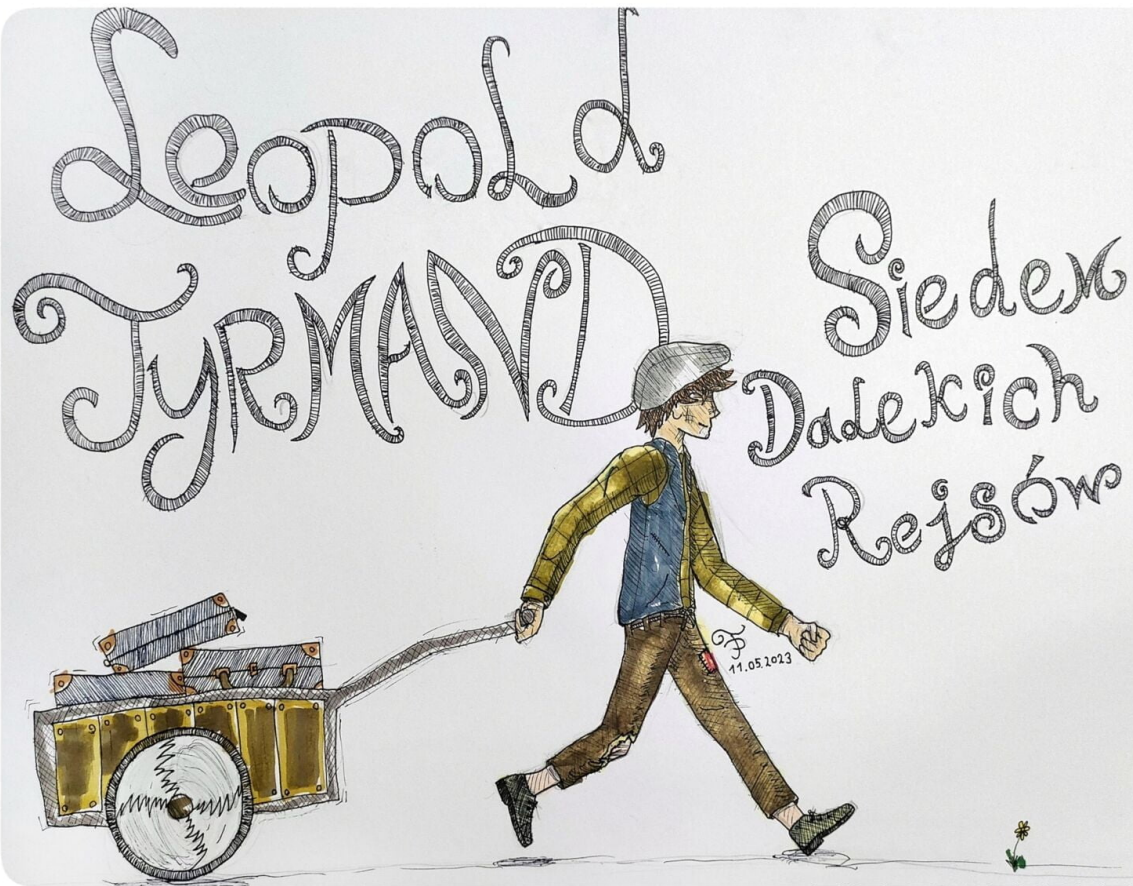 Leopold
Tyrmand
Siedem
Dalekich
Rejsów
11.05.2023